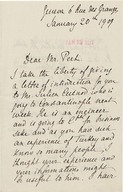 Geneva 6 rue des Granges
January 20th 1909
Dear Mr. Peet
I take the liberty of giving
a letter of introduction to you
to Mr. Lucien Picard who is
going to Constantinople next
week. He is an engineer
and is going to for business
sake and as you have such
an experience of Turkey and
know so many people I
thought your experience and
your informations might be
useful to him. I have